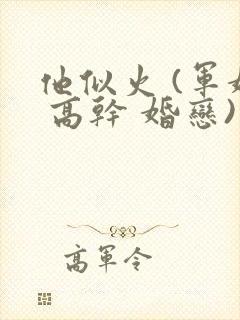 他似火(軍婚
高幹 婚戀)
高軍令